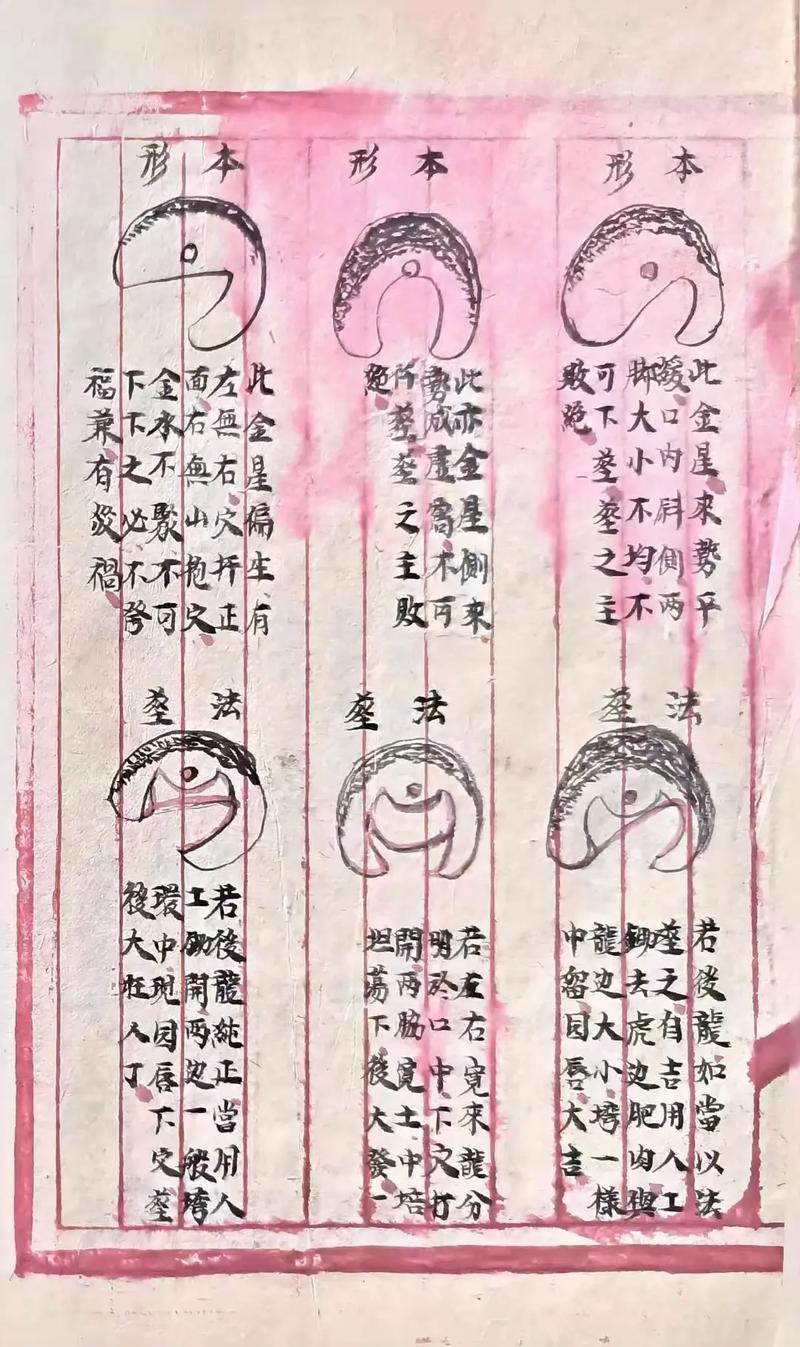 本形
此金星來勢平
緩口內斜側兩
脚大小不均不
可下塟塟之主
敗絕
法塟
若後龍如當以法
塟之自吉用人工
鋤去虎边肥肉與
龍边大小塆一樣
中留因唇大吉
本形
此亦金星側來
勢成虛窩不可
扦塟塟之主敗
絕
法塟
若左右寬來龍分
明於口中下穴打
開兩脇寬土中培
坦蕩下後大發一
本形
此金星偏生有
左無右穴扦正
面右無山抱穴
金水不聚不可
下下之必不發
福兼有災禍
法塟
若後龍純正當用人
工鋤開兩边一般塆
環中現因唇下穴塟
後大旺人丁